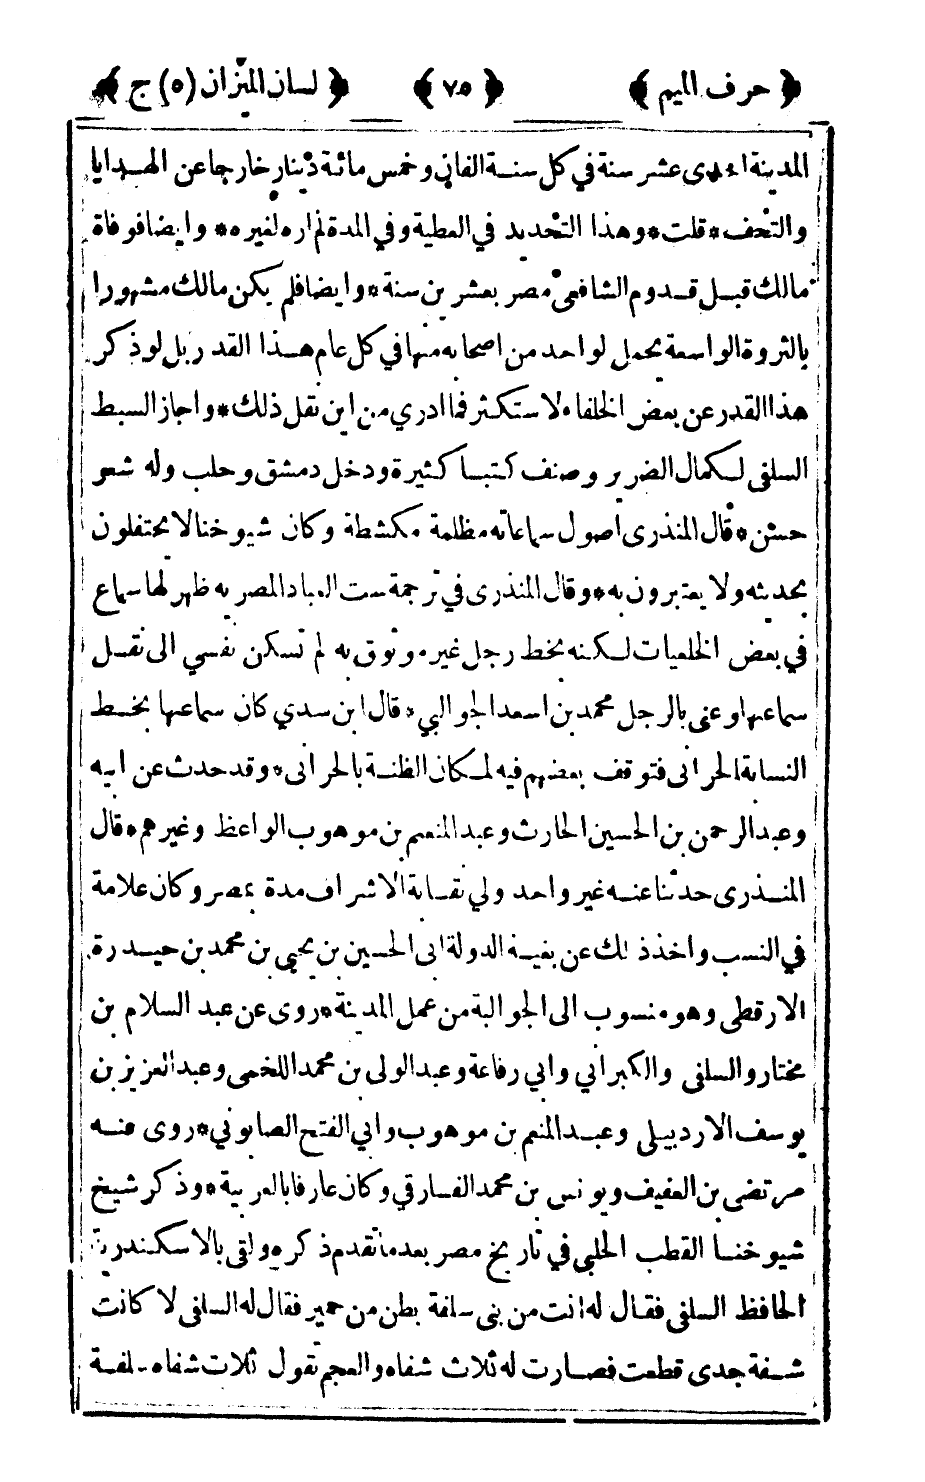 ﴿ حرف الميم ﴾ ﴿ ٧٥ ﴾ ﴿ لسان الميزان (٥) ج ﴾
المدينة احدى عشر سنة في كل سنة الفان وخمس مائة دينار خارجا عن الهدايا
والتحف * قلت * وهذا التحديد في العطية وفي المدة لم اره لغيره * وايضا فوفاة
مالك قبل قدوم الشافعي مصر بعشرين سنة * وايضا فلم يكن مالك مشهورا
بالثروة الواسعة يحمل لواحد من اصحابه منها في كل عام هذا القدر بل لو ذكر
هذا القدر عن بعض الخلفاء لاستكثر فما ادري من اين نقل ذلك * واجاز السبط
السلفى لكمال الضرير وصنف كتبا كثيرة ودخل دمشق وحلب وله شعر
حسن * قال المنذرى اصول سماعاته مظلمة مكشطة وكان شيوخنا لا يحتفلون
بحديثه ولا يعتبرون به * وقال المنذرى في ترجمة ست العباد المصريه ظهر لها سماع
في بعض الخلعيات لكنه بخط رجل غير موثوق به لم تسكن نفسي الى نقل
سماعها وعنى بالرجل محمد بن اسعد الجوالبي * قال ابن سدي كان سماعها بخط
النسابة الحرانى فتوقف بعضهم فيه لمكان الظنة بالحرانى * وقد حدث عن ابيه
وعبد الرحمن بن الحسين الحارث وعبد المنعم بن موهوب الواعظ وغيرهم * قال
المنذرى حدثنا عنه غير واحد ولي نقابة الاشراف مدة بمصر وكان علامة
في النسب واخذ ذلك عن بقية الدولة ابى الحسين بن يحيى بن محمد بن حيدرة
الارقطى وهو منسوب الى الجوالبة من عمل المدينة * روى عن عبد السلام بن
مختار والسلفى والكيراني وابي رفاعة وعبد الولى بن محمد اللخمى وعبد العزيز بن
يوسف الاردبيلى وعبد المنعم بن موهوب وابي الفتح الصابوني * روى عنه
مرتضى بن العفيف ويونس بن محمد الفارقي وكان عارفا بالعربية * وذكر شيخ
شيوخنا القطب الحلبي في تاريخ مصر بعد ما تقدم ذكره ولقى بالاسكندرية
الحافظ السلفى فقال له انت من بنى سلفة بطن من حمير فقال له السلفى لا كانت
شفة جدى قطعت فصارت له ثلاث شفاه والعجم تقول ثلاث شفاه سلفة